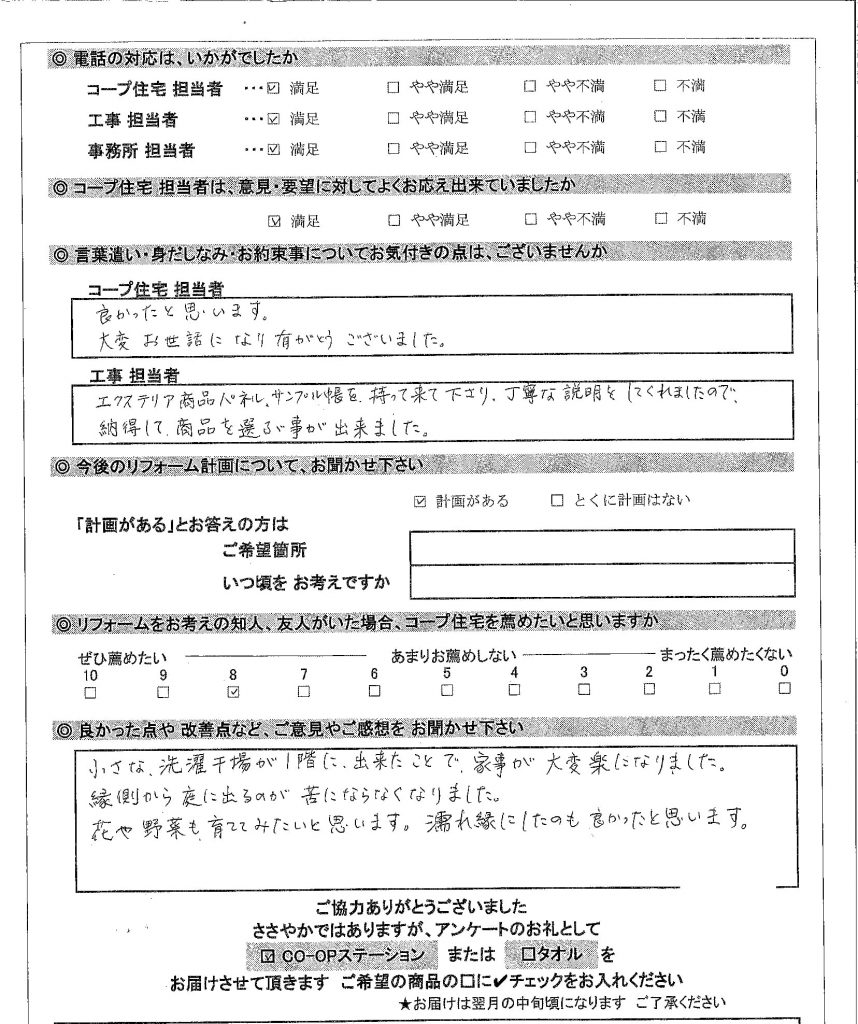 ◎ 電話の対応は、いかがでしたか
コープ住宅 担当者 …☑ 満足 □ やや満足 □ やや不満 □ 不満
工事 担当者 …☑ 満足 □ やや満足 □ やや不満 □ 不満
事務所 担当者 …☑ 満足 □ やや満足 □ やや不満 □ 不満
◎ コープ住宅 担当者は、意見・要望に対してよくお応え出来ていましたか
☑ 満足 □ やや満足 □ やや不満 □ 不満
◎ 言葉遣い・身だしなみ・お約束事についてお気付きの点は、ございませんか
コープ住宅 担当者
良かったと思います。
大変 お世話に なり 有がとう ございました。
工事 担当者
エクステリア商品パネル、サンプル帳を、持って来て下さり、丁寧な説明をしてくれましたので、
納得して、商品を選ぶ事が出来ました。
◎ 今後のリフォーム計画について、お聞かせ下さい
☑ 計画がある □ とくに計画はない
「計画がある」とお答えの方は
ご希望箇所
いつ頃を お考えですか
◎ リフォームをお考えの知人、友人がいた場合、コープ住宅を薦めたいと思いますか
ぜひ薦めたい あまりお薦めしない まったく薦めたくない
10 9 8 7 6 5 4 3 2 1 0
□ □ ☑ □ □ □ □ □ □ □ □
◎ 良かった点や 改善点など、ご意見やご感想を お聞かせ下さい
小さな、洗濯干場が1階に、出来たことで、家事が 大変楽になりました。
縁側から庭に出るのが 苦にならなくなりました。
花や野菜も育ててみたいと思います。濡れ縁にしたのも良かったと思います。
ご協力ありがとうございました
ささやかではありますが、アンケートのお礼として
☑ CO-OPステーション または □タオル を
お届けさせて頂きます ご希望の商品の□に✔チェックをお入れください
★お届けは翌月の中旬頃になります ご了承ください